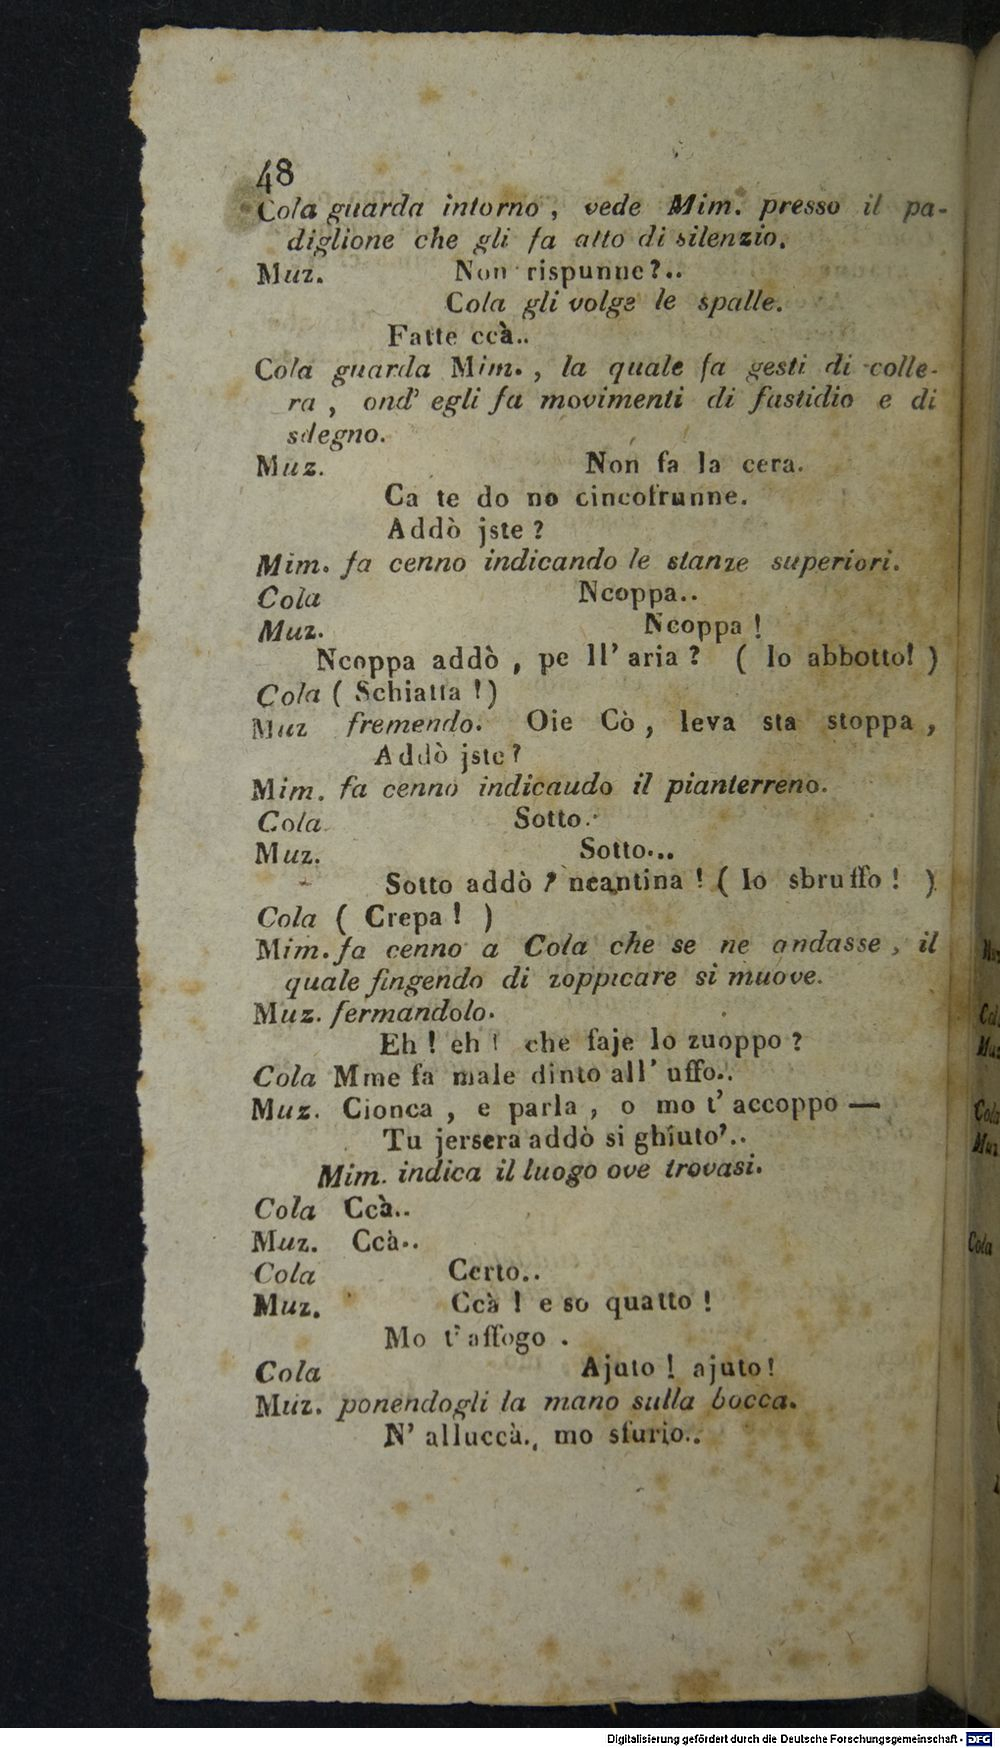 48
Cola guarda intorno, vede Mim. presso il pa-
diglione che gli fa atto di silenzio.
Muz. Non rispunne?..
Cola gli volge le spalle.
Fatte ccà..
Cola guarda Mim., la quale fa gesti di colle-
ra, ond' egli fa movimenti di fastidio e di
sdegno.
Muz. Non fa la cera.
Ca te do no cincofrunne.
Addò jste?
Mim. fa cenno indicando le stanze superiori.
Cola Ncoppa..
Muz. Ncoppa!
Ncoppa addò, pe ll' aria? (Io abbotto!)
Cola (Schiatta!)
Muz fremendo. Oie Cò, leva sta stoppa,
Addò jste?
Mim. fa cenno indicaudo il pianterreno.
Cola Sotto..
Muz. Sotto...
Sotto addò? ncantina! (Io sbruffo!)
Cola (Crepa!)
Mim. fa cenno a Cola che se ne andasse, il
quale fingendo di zoppicare si muove.
Muz. fermandolo.
Eh! eh! che faje lo zuoppo?
Cola Mme fa male dinto all' uffo..
Muz. Cionca, e parla, o mo t' accoppo —
Tu jersera addò si ghiuto'..
Mim. indica il luogo ove trovasi.
Cola Ccà..
Muz. Ccà..
Cola Certo..
Muz. Ccà! e so quatto!
Mo t' affogo.
Cola Ajuto! ajuto!
Muz. ponendogli la mano sulla bocca.
N' alluccà., mo sfurio..
Digitalisierung gefördert durch die Deutsche Forschungsgemeinschaft - DFG